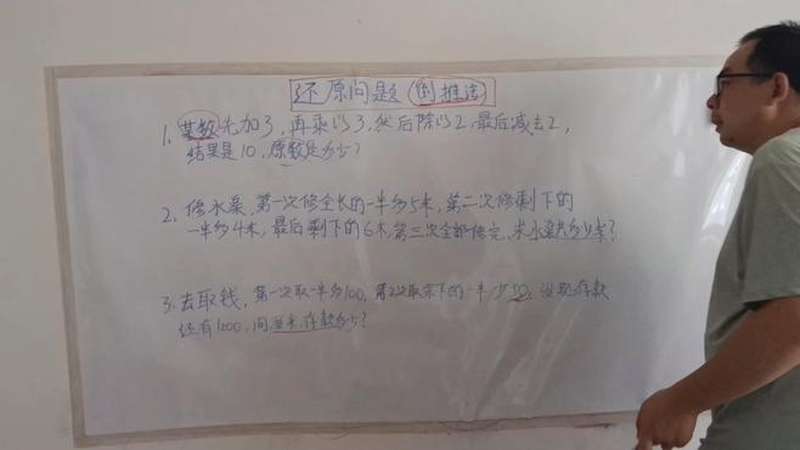 还原问题(倒推法)
1. 某数先加3,再乘以3,然后除以2,最后减去2,
结果是10,原数是多少?
2. 修水渠,第一次修全长的一半多5米,第二次修剩下的
一半多4米,最后剩下的6米,第三次全部修完,求水渠共多少米?
3. 去取钱,第一次取一半多100,第2次取余下的一半少50,发现存款
还有1200,问原来存款多少?